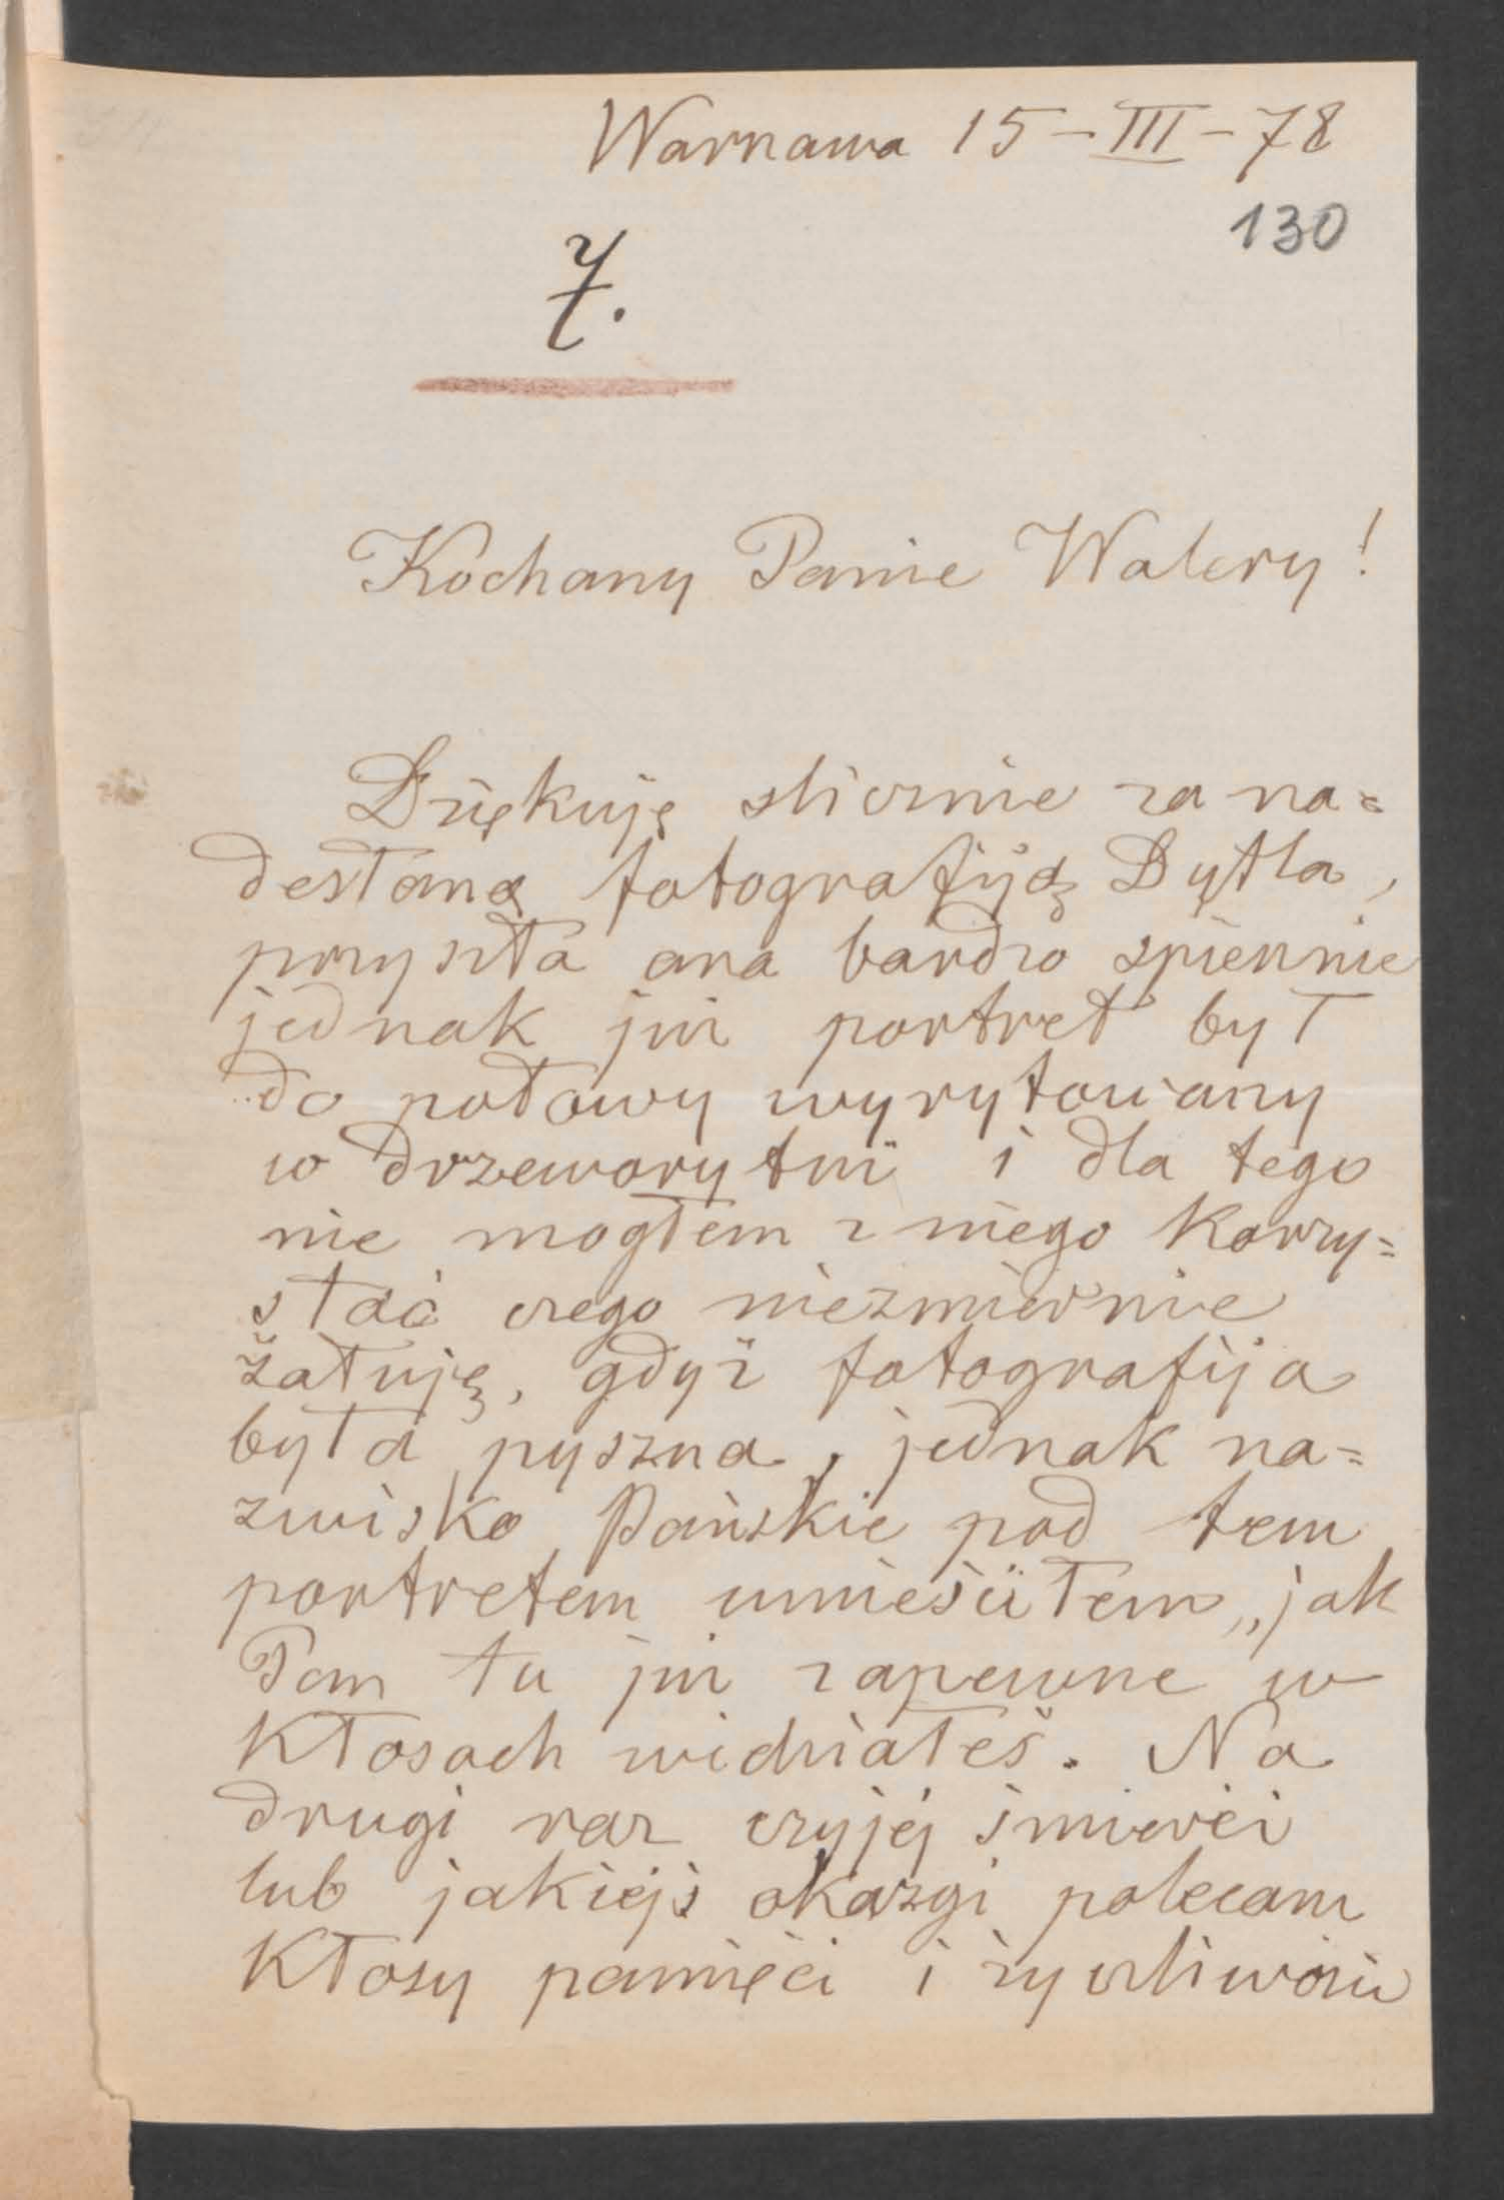 Warszawa 15-III-78
130
7.
Kochany Panie Walery!
Dziękuję slicznie za na=
desłaną fotografiją Dytla,
przyszła ona bardzo spiesznie
jednak już portret był
do połowy wyrytowany
w drzeworytni i dla tego
nie mogłem z niego korzy=
stać czego niezmiernie
żałuję, gdyż fotografija
była pyszna, jednak na=
zwisko Pańskie pod tem
portretem umieściłem, jak
Pan tu już zapewne w
Kłosach widziałeś. Na
drugi raz czyjéj śmierci
lub jakiejś okazyi polecam
Kłosy pamięci i życzliwości